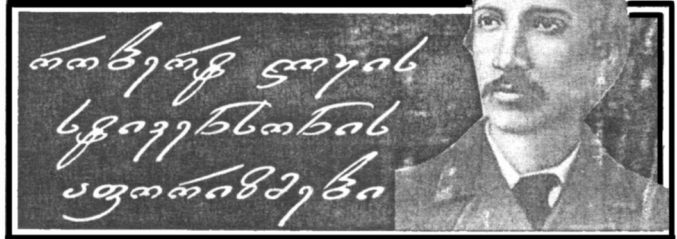 რობერტ ლუის
სტივენსონის
აფორიზმები